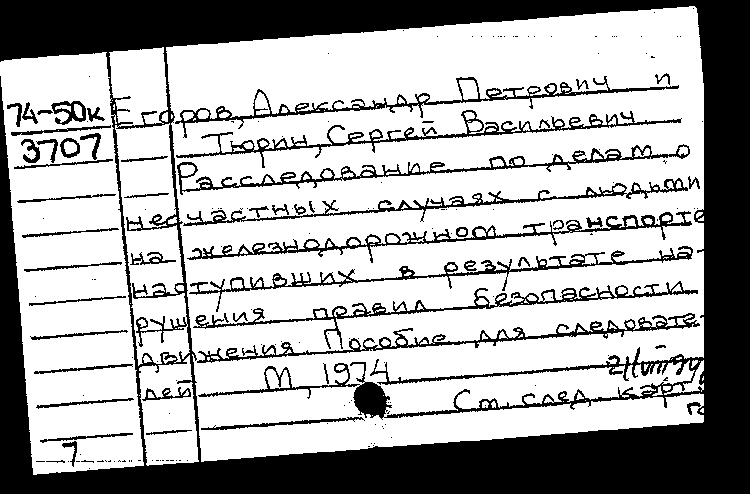 74-50к
3707
Егоров, Александр Петрович и
Тюрин, Сергей Васильевич.
Расследование по делам о
несчастных случаях с людьми
на железнодорожном транспорте
наступивших в результате на-
рушения правил безопасности
движения. Пособие для следовате-
лей М, 1974.
См. след. карт.
7